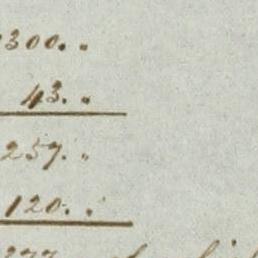 300. "
43. "
257. "
120. "
377